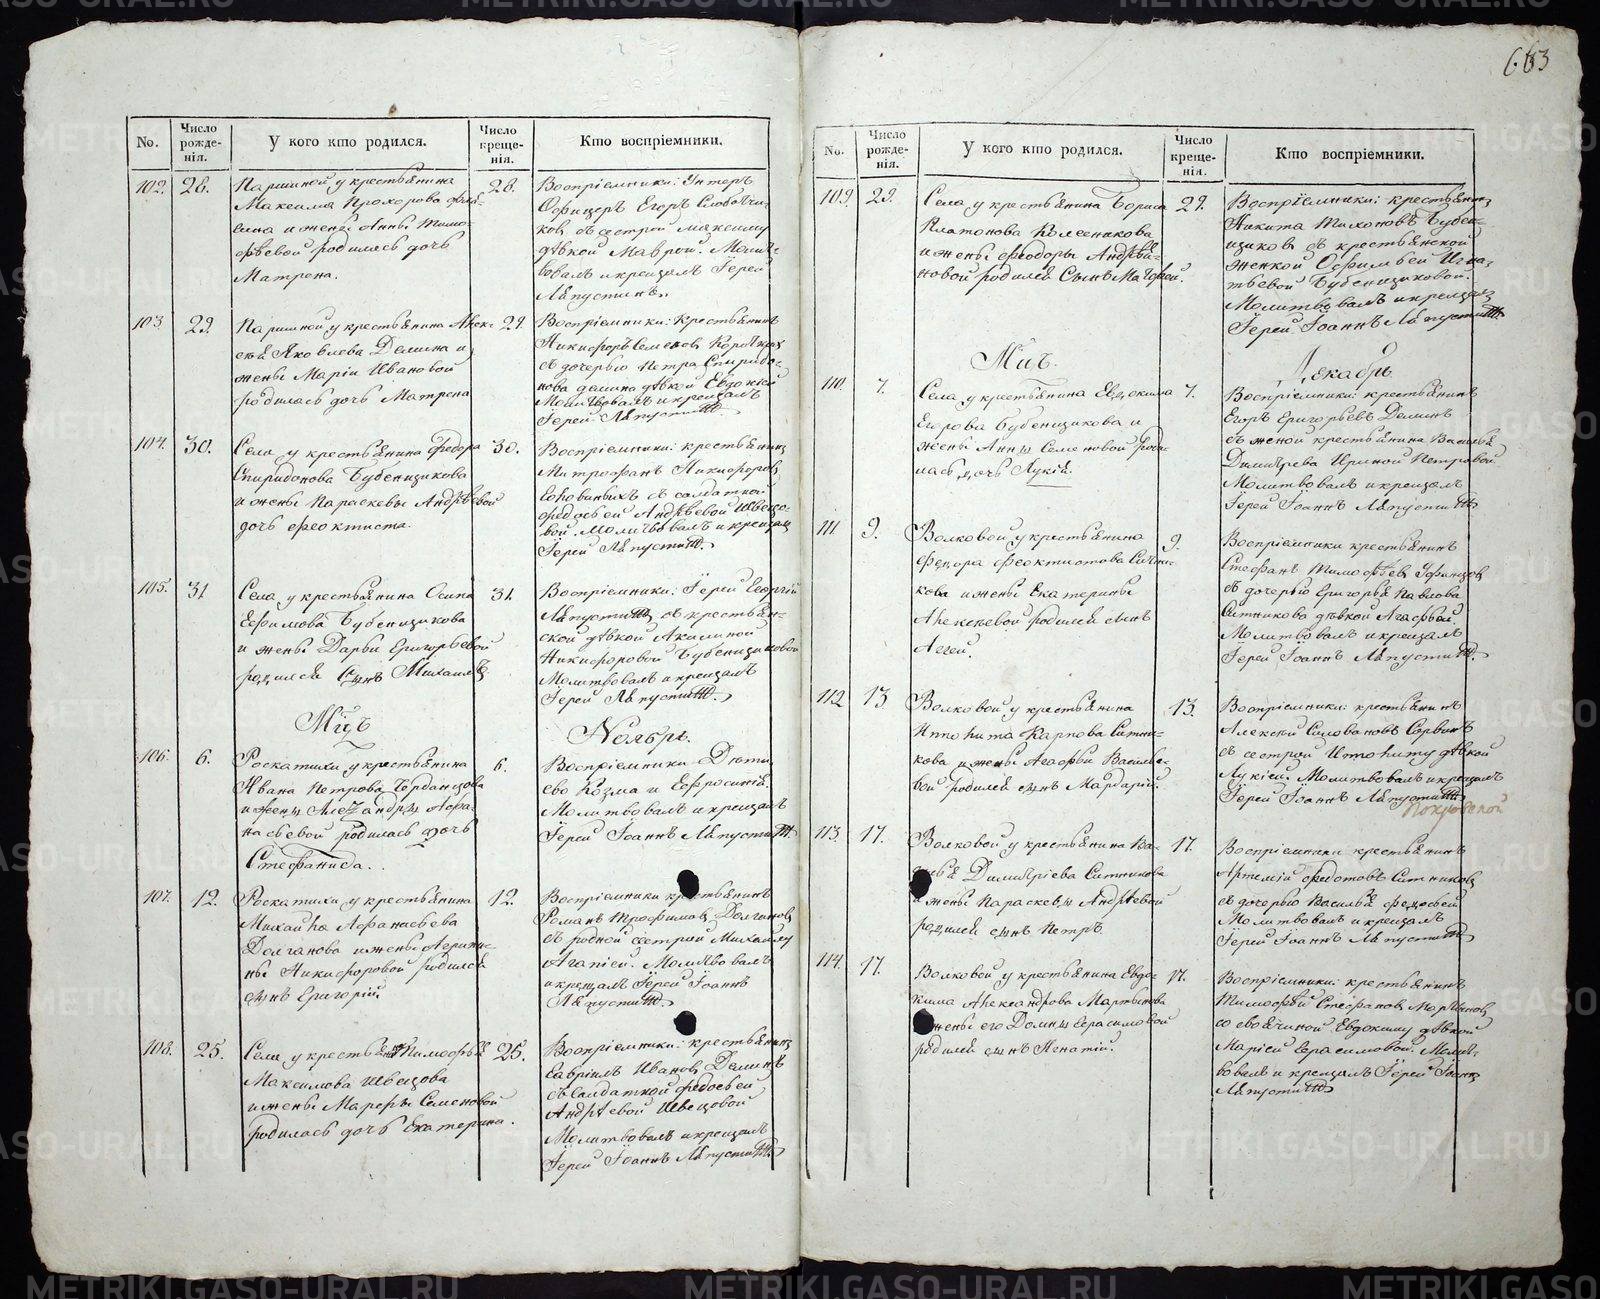 663
No.
Число рожденія.
У кого кто родился.
Число крещенія.
Кто воспріемники.
102. 28.
Паршиной у крестьянина
Максима Прохорова
и жены Анны Тимо-
феевой родилась дочь
Матрена.
28.
Воспріемники: Унтеръ
Офицеръ Егоръ Слободчи-
ковъ съ сестрой Максиму
дѣвкой Маврой. Молит-
вовалъ и крещалъ Іерей
Лѣпустинъ.
103. 29.
Паршиной у крестьянина Алек-
сѣя Яковлева Демина и
жены Маріи Ивановой
родилась дочь Матрена
29.
Воспріемники: Крестьянинъ
Никифоръ Семеновъ
съ дочерью Петра Спиридо-
нова Демина дѣвкой Евдокіей
Молитвовалъ и крещалъ
Іерей Лѣпустинъ
104. 30.
Села у крестьянина Федора
Спиридонова Бубенщикова
и жены Параскевы Андрѣевой
дочь Феоктиста.
30.
Воспріемники: крестьянинъ
Митрофанъ Никифоровъ
съ солдаткой
Федосьей Андрѣевой Швецо-
вой. Молитвовалъ и крещалъ
Іерей Лѣпустинъ
105. 31
Села у крестьянина Осипа
Ефимова Бубенщикова
и жены Дарьи Григорьевой
родился сынъ Михаилъ
31.
Воспріемники: Іерей Георгій
Лѣпустинъ съ крестьян-
ской дѣвкой Акилиной
Никифоровой Бубенщиковой
Молитвовалъ и крещалъ
Іерей Лѣпустинъ
Мцъ Ноябрь.
106. 6.
Роскатихи у крестьянина
Ивана Петрова
и жены Александры Афа-
насьевой родилась дочь
Стефанида.
6.
Воспріемники Дѣти
его Козма и Ефросинія.
Молитвовалъ и крещалъ
Іерей Іоаннъ Лѣпустинъ.
107. 12.
Роскатихи у крестьянина
Михайла Афанасьева
Долганова и жены Агрипи-
ны Никифоровой родился
сынъ Григорій.
12.
Воспріемники крестьянинъ
Романъ Трофимовъ Долгановъ
съ родной сестрой Михайлу
Агапіей. Молитвовалъ
и крещалъ Іерей Іоаннъ
Лѣпустинъ
108. 25.
Села у крестьянина Тимофѣя
Максимова Швецова
и жены Марфы Семеновой
родилась дочь Екатерина.
25.
Воспріемники: крестьянинъ
Гавріилъ Ивановъ Деминъ
съ Солдаткой Федосьей
Андрѣевой Швецовой
Молитвовалъ и крещалъ
Іерей Іоаннъ Лѣпустинъ
No.
Число рожденія.
У кого кто родился.
Число крещенія.
Кто воспріемники.
109. 29.
Села у крестьянина Бориса
Платонова Колесникова
и жены Феодоры Андрѣя-
новой родился Сынъ Матфей.
29.
Воспріемники: крестьянинъ
Никита Тихоновъ Бубен-
щиковъ съ крестьянской
женкой Офимьей Игна-
тьевой Бубенщиковой.
Молитвовалъ и крещалъ
Іерей Іоаннъ Лѣпустинъ.
Мцъ. Декабрь
110. 7.
Села у крестьянина Евдокима
Егорова Бубенщикова и
жены Анны Семеновой роди-
лась дочь Лукія.
7.
Воспріемники: крестьянинъ
Егоръ Григорьевъ Деминъ
съ женой крестьянина Василья
Димитрева Ириной Петровой
Молитвовалъ и крещалъ
Іерей Іоаннъ Лѣпустинъ
111. 9.
Волковой у крестьянина
Федора Феоктистова Ситни-
кова и жены Екатерины
Алексѣевой родился сынъ
Аггей.
9.
Воспріемники крестьянинъ
Стефанъ Тимофѣевъ
съ дочерью Григорья Павлова
Ситникова дѣвкой Агафьей.
Молитвовалъ и крещалъ
Іерей Іоаннъ Лѣпустинъ.
112 13
Волковой у крестьянина
Ипполита Карпова Ситни-
кова и жены Агафьи Василье-
вой родился сынъ Мардарій.
13.
Воспріемники: крестьянинъ
Алексѣй
съ сестрой Ипполиту дѣвкой
Лукіей. Молитвовалъ и крещалъ
Іерей Іоаннъ Лѣпустинъ
Покровской
113. 17.
Волковой у крестьянина Ва-
силья Димитріева Ситникова
и жены Параскевы Андрѣевой
родился сынъ Петръ.
17.
Воспріемники крестьянинъ
Артемій Федотовъ Ситниковъ
съ дочерью Василья Федосьей
Молитвовалъ и крещалъ
Іерей Іоаннъ Лѣпустинъ
114. 17.
Волковой у крестьянина Евдо-
кима Александрова Мартынова
и жены его Домны Герасимовой
родился сынъ Игнатій.
17.
Воспріемники: крестьянинъ
Тимофѣй Стефановъ Мартыновъ
со своячиной Евдокиму дѣвкой
Маріей Герасимовой. Молит-
вовалъ и крещалъ Іерей Іоаннъ
Лѣпустинъ
METRIKI.GASO-URAL.RU